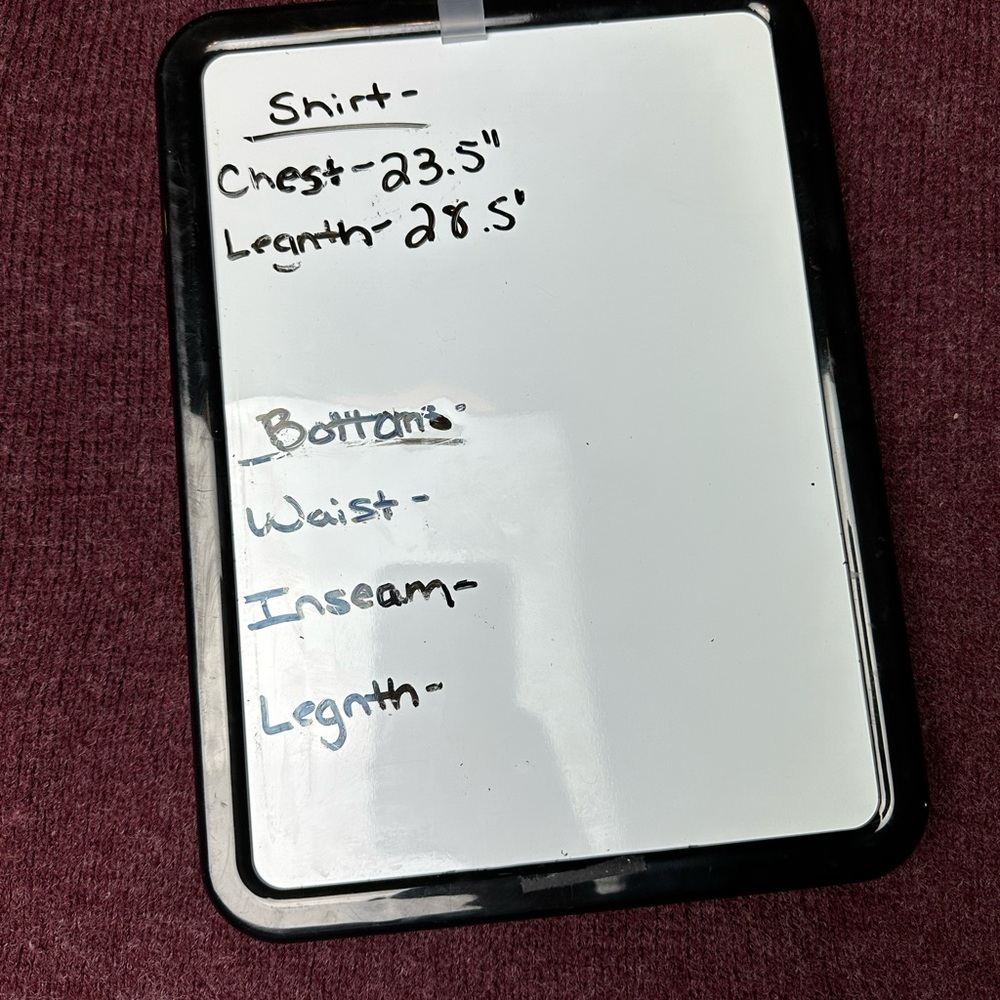 Shirt-
Chest-23.5"
Legnth-28.5'
Bottoms-
Waist-
Inseam-
Legnth-